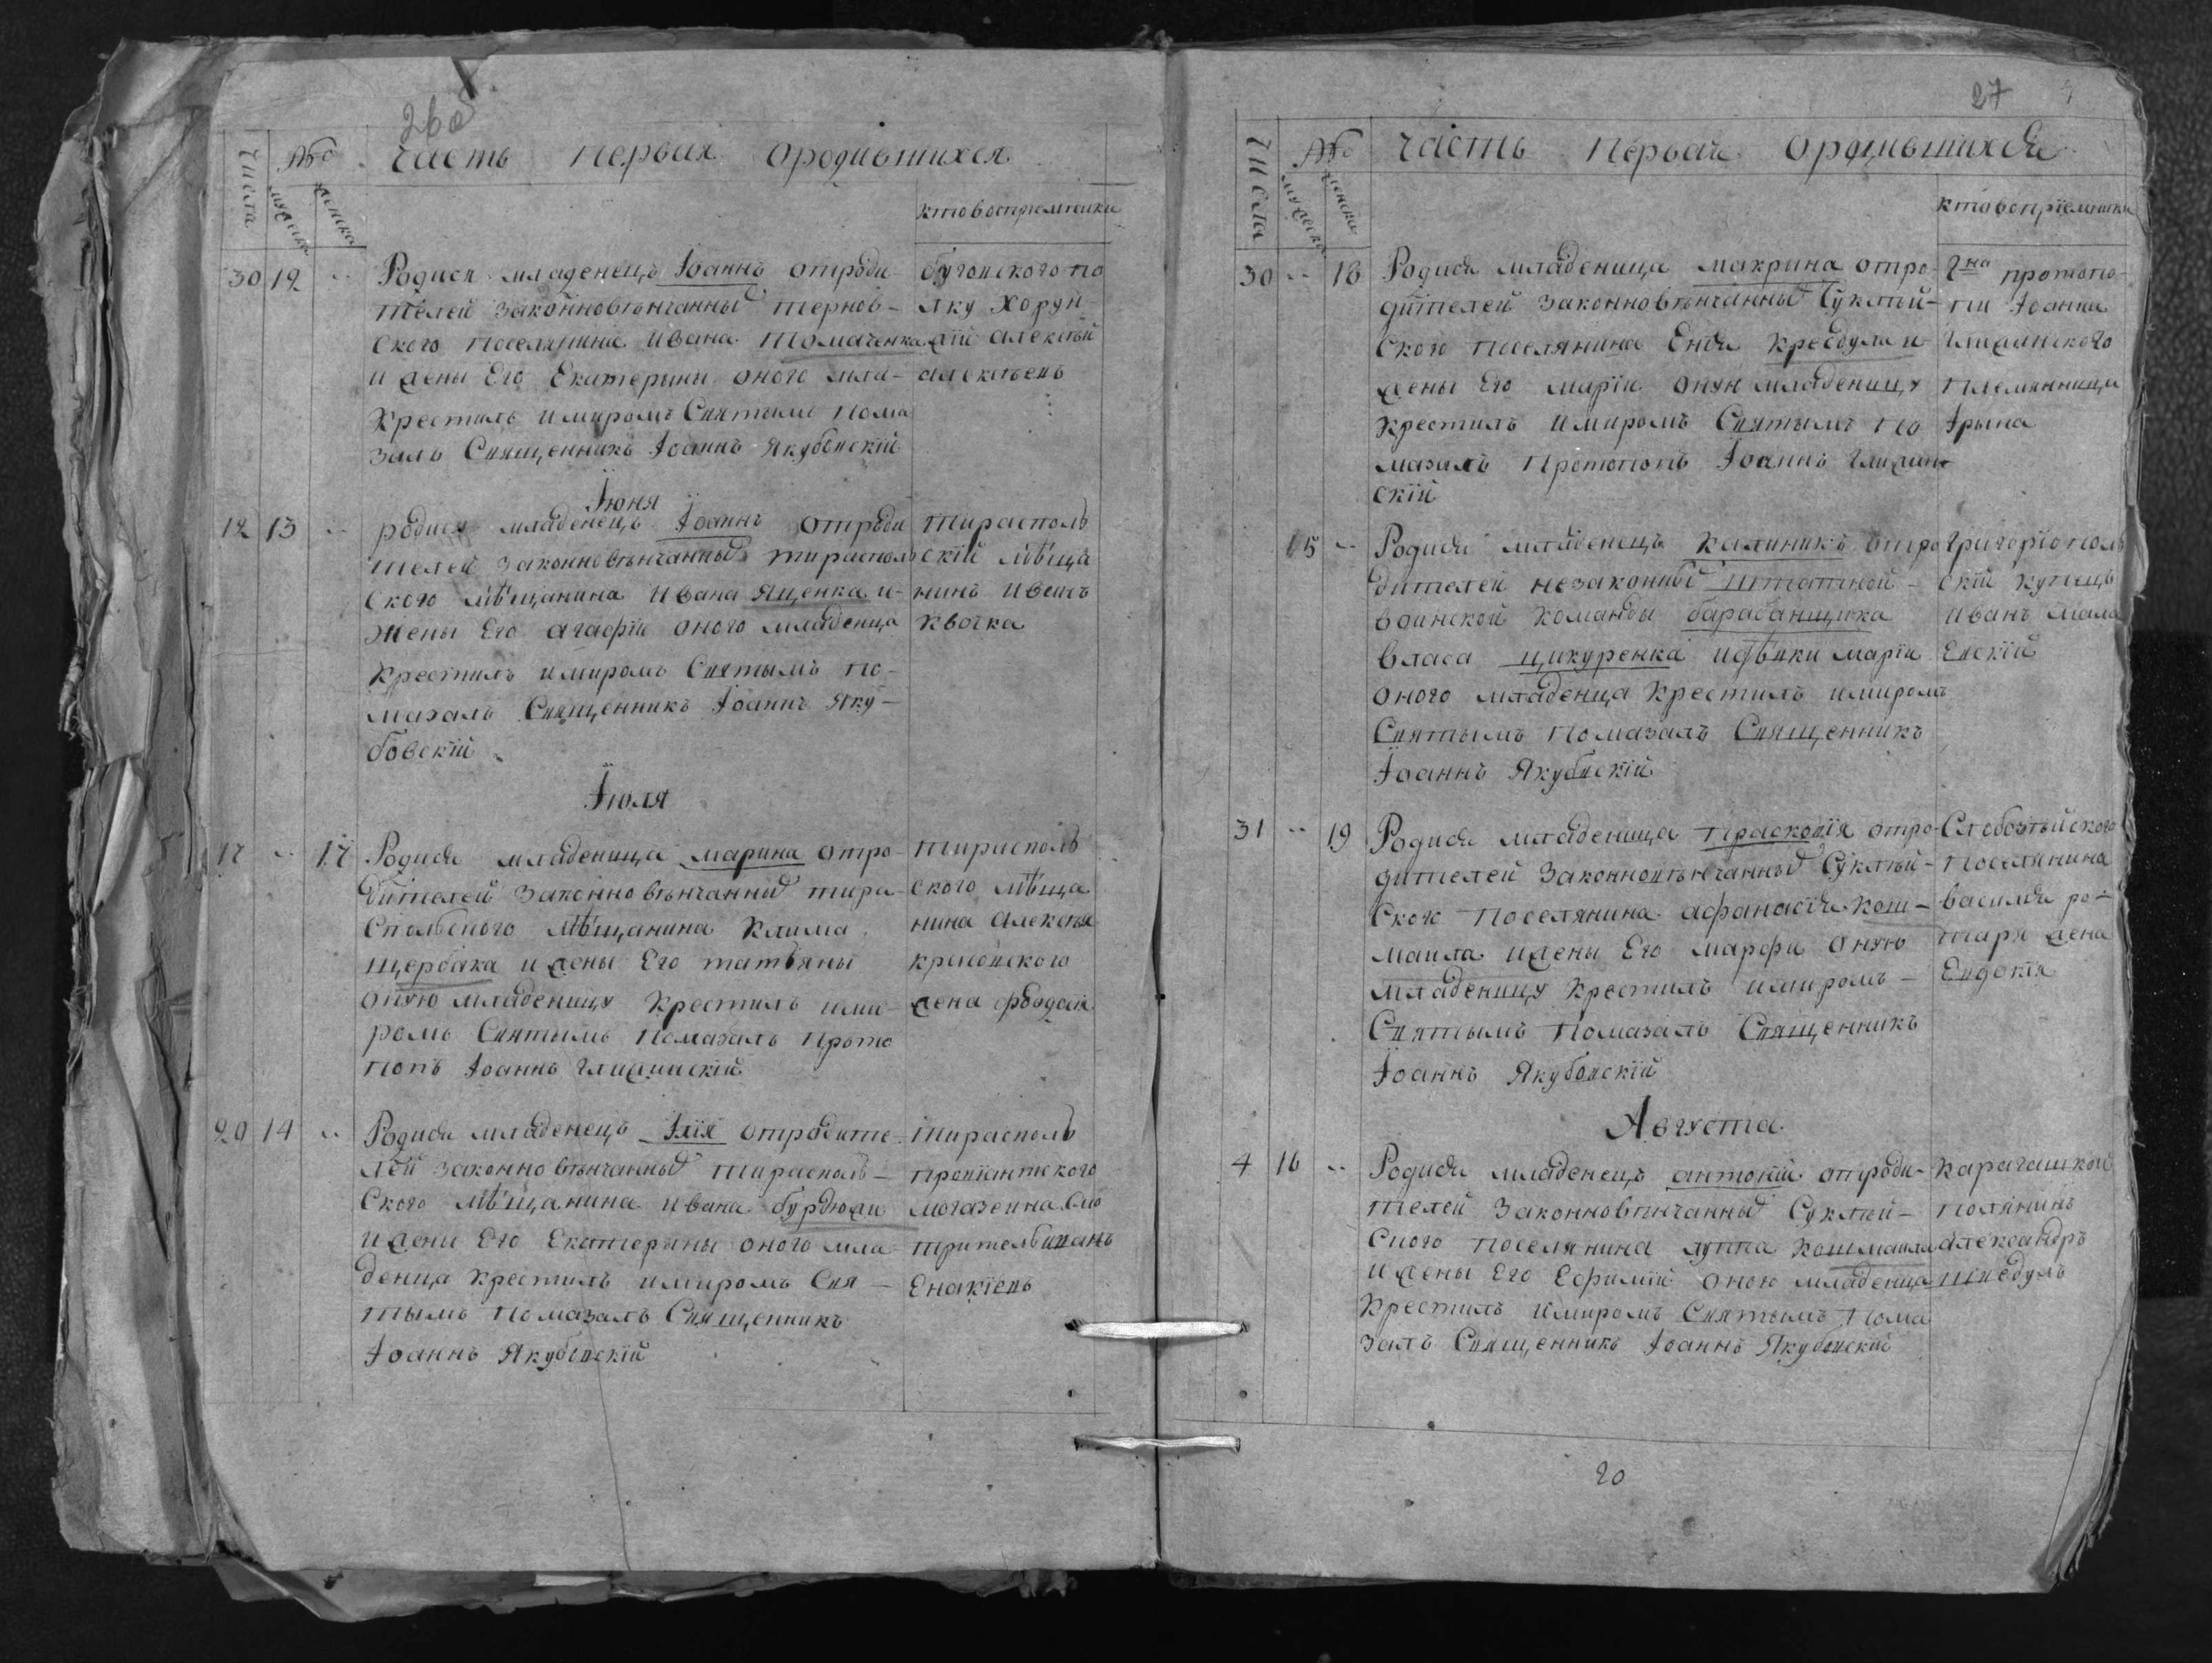 26об
Числа
№
мужеска
женска
Часть первая ородившихся
ктовоспріемники
30 12 ..
Родися младенецъ Іоаннъ отроди-
телей законновѣнчанныхъ тернов-
ского поселянина Ивана Томаченка
и жены Его Екатерини оного мла-
Крестилъ имиромъ Святымъ пома
залъ Священникъ Іоаннъ Якубовскій
бугского по
лку Хорун
жій алексѣй
алексѣевъ
Іюня
12 13 ..
родися младенецъ Іоаннъ отроди
телей законновѣнчанныхъ тирасполь
ского мѣщанина Ивана Яценка и-
жены Его агафіи оного младенца
Крестилъ имиромъ Святымъ по-
мазалъ Священникъ Іоаннъ Яку-
бовскій
тирасполь
скій мѣща
нинъ Иванъ
Квочка
Іюля
17 .. 17
Родися младеница марина отро-
дителей законновѣнчанныхъ тира-
спольского мѣщанина Клима
щербака и жены Его татьяны
оную младеницу Крестилъ ими-
ромъ Святымъ помазалъ прото
попъ Іоаннъ Глижинскій
тирасполь
ского мѣща
нина алексѣя
жена
20 14 ..
Родися младенецъ Ілія отродите-
лей законновѣнчанныхъ тирасполь-
ского мѣщанина ивана бурдюжи
и жени Его Екатерины оного мла-
денца Крестилъ имиромъ Свя-
тымъ помазалъ Священникъ
Іоаннъ Якубовскій
тирасполь
провіантского
могазеина смо
трительиванъ
Енакіевъ
27
Числа
№
мужеска
женска
Часть Первая Ородившихся
ктовоспріемники
30 .. 18
Родися младеница макрина отро-
дителей законновѣнчанныхъ Суклѣй-
ского поселянина Енія кресдула и-
жены Его маріи оную младеницу
Крестилъ имиромъ Святымъ по
мазалъ Протопопъ Іоаннъ Глижин
скій
Гна протопо-
па Іоанна
Глижинского
племянница
Ірына
15 ..
Родися младенецъ калиникъ отро
дителей незаконныхъ штатной-
воинской команды барабанщика
власа цикуренка идѣвки маріи
оного младенца Крестилъ имиромъ
Святымъ помазалъ Священникъ
Іоаннъ Якубовскій
Григоріополь
скій купецъ
иванъ мала
Евскій
31 .. 19
Родися младеница прасковія отро-
дителей Законновѣнчанныхъ Суклѣй-
ского поселянина афанасія кош-
маила ижены Его марфи оную
младеницу Крестилъ имиромъ-
Святымъ помазалъ Священникъ
Іоаннъ Якубовскій
Слобозѣйского
поселянина
василія ро-
таря жена
Евдокія
Августа
4 16 ..
Родися младенецъ антоній отроди-
телей Законновѣнчанныхъ Суклѣй-
ского поселянина луппа Кошмаила
и жены Его Ефиміи оного младенца
Крестилъ имиромъ Святымъ пома
залъ Священникъ Іоаннъ Якубовскій
карагашкой
полянинъ
александръ
20